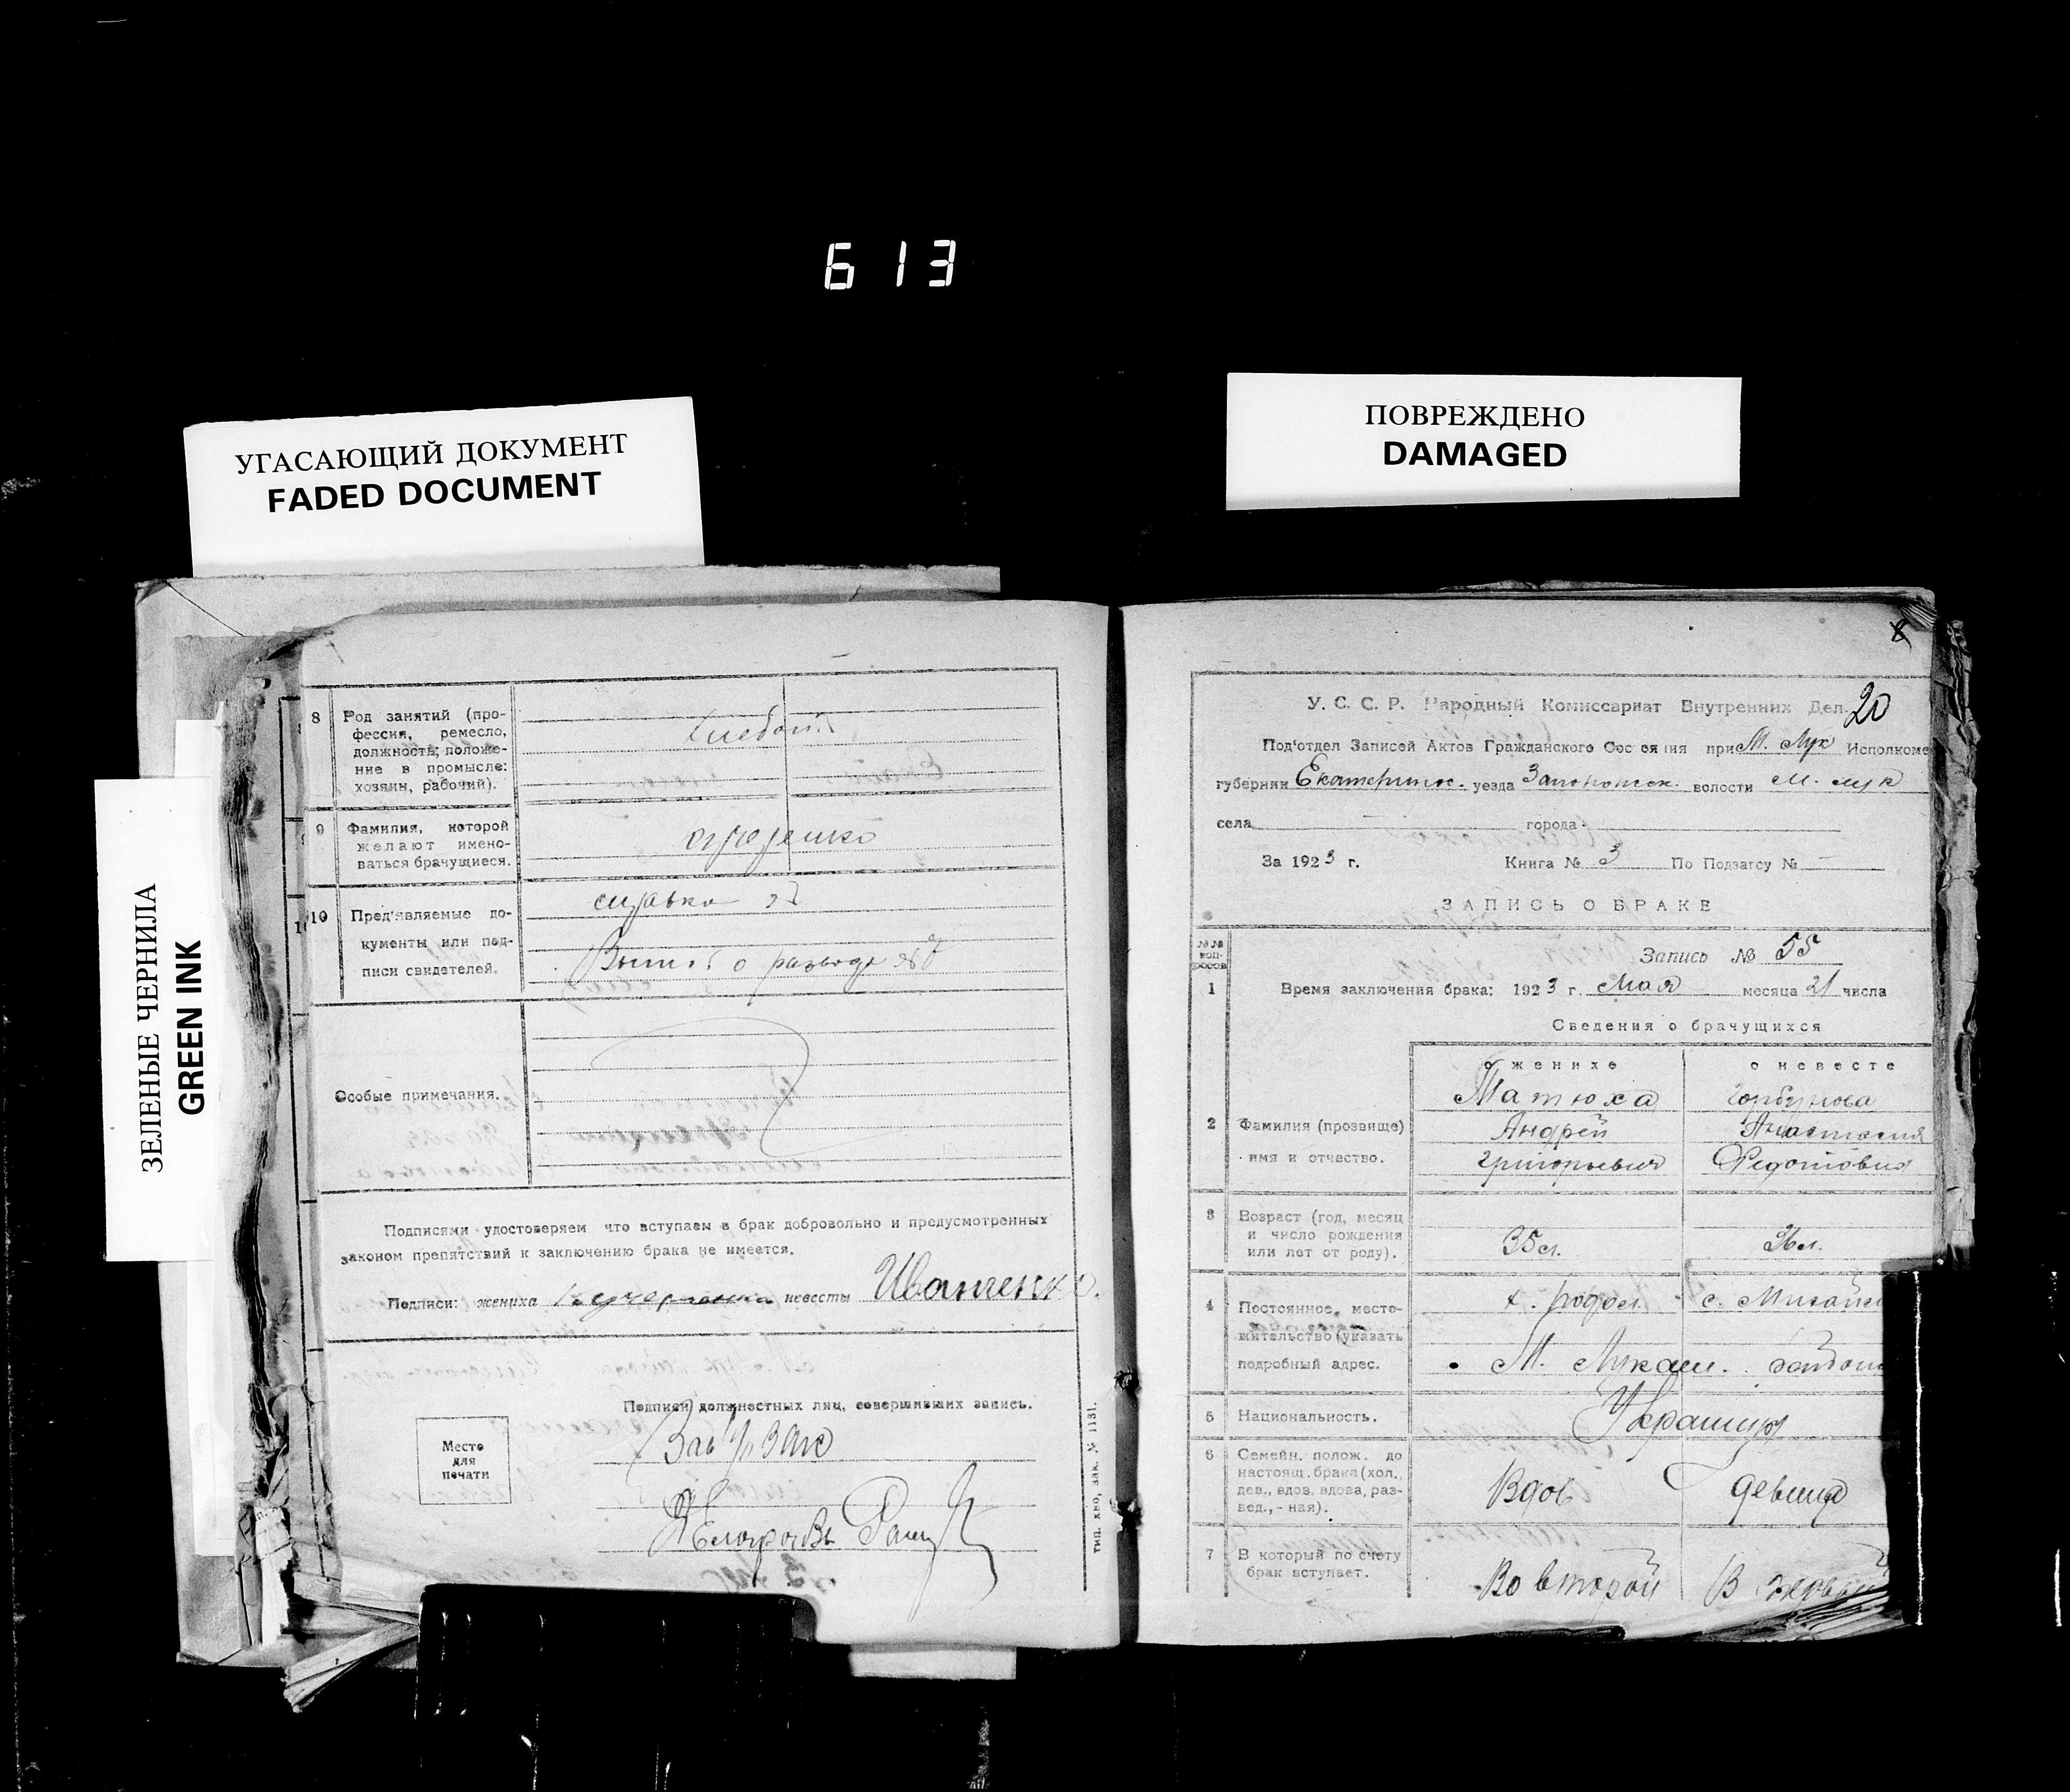 613
УГАСАЮЩИЙ ДОКУМЕНТ
FADED DOCUMENT
ПОВРЕЖДЕНО
DAMAGED
ЗЕЛЕНЫЕ ЧЕРНИЛА
GREEN INK
8 Род занятий (про-
фессия, ремесло,
должность; положе-
ние в промысле:
хозяин, рабочий).
9 Фамилия, которой
желают имено-
ваться брачущиеся.
справка
10 Пред'являемые до-
кументы или под-
писи свидетелей.
о разводе
Особые примечания.
Подписями удостоверяем что вступаем в брак добровольно и предусмотренных
законом препятствий к заключению брака не имеется.
Подписи: жениха невесты Иванченко.
Подписи должностных лиц, совершивших запись.
Место
для
печати
Зав
Тип. хно, зак. № 1131.
8
У. С. С. Р. Народный Комиссариат Внутренних Дел. 20
Под'отдел Записей Актов Гражданского Состояния при М. Лук Исполкоме
губернии Екатеринос. уезда Запорожск. волости М. Лук
села города
За 1923 г. Книга № 3 По Подзагсу № —
ЗАПИСЬ О БРАКЕ
№№ воп-росов
Запись № 55
1 Время заключения брака: 1923 г. Мая месяца 21 числа
Сведения о брачущихся
о женихе о невесте
Матюха Горбунова
2 Фамилия (прозвище) Андрей Анастасия
имя и отчество. Григорьевич Федотовна
3 Возраст (год, месяц
и число рождения
или лет от роду). 35 л. 36 л.
4 Постоянное место-
жительство (указать
подробный адрес.
с. Михайл
М. Лукаш.
5 Национальность. Украинцы
6 Семейн. полож. до
настоящ. брака (хол.,
дев., вдов. вдова, раз-
вед., - ная).
Вдов девица
7 В который по счету
брак вступает.
Во второй В первый